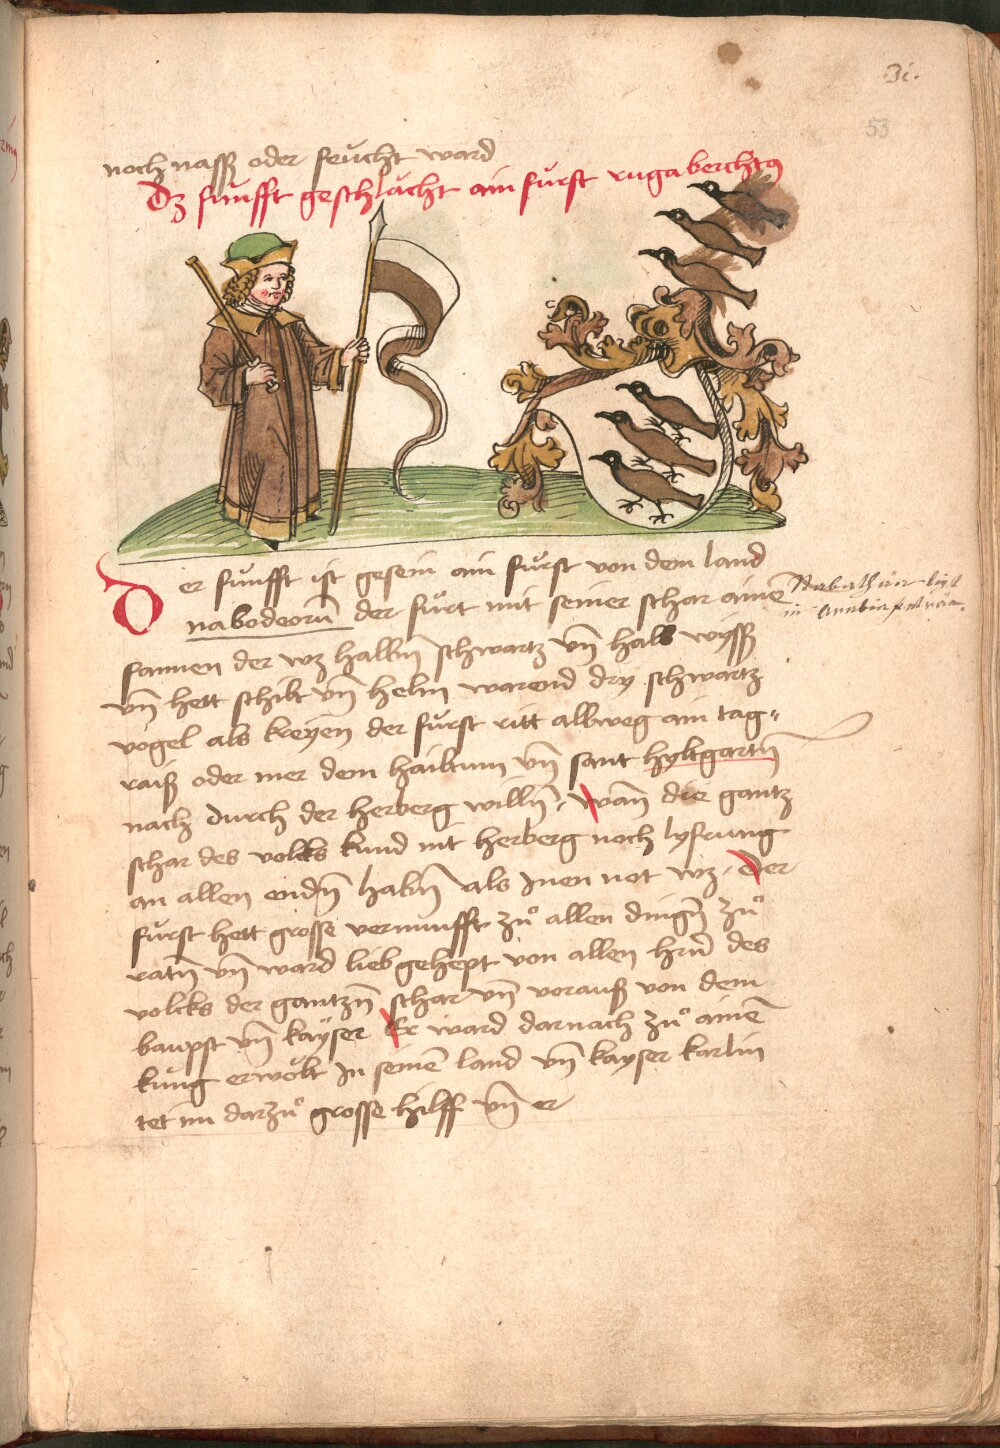 3i.
53
noch nass oder feucht ward
Dz funfft geschlächt ain furst rugaberchtꝰ
Der funfft ist gesein ain furst von dem land
nabodeorū der furt mit seiner schar ainē
Nabathäar ligt
in Arabia
fannen der wz halbn̄ schwartz vn̄ halb wyss
vn̄ hett schilt vn̄ helm warend dry schwartz
vogel als kreyen der furst ritt allweg ain tag
raiß oder mer dem hailtum vn̄ sant hyltgartn̄
nach durch der herberg willn̄, wan̄ die gantz
schar des volcks kund nit herberg noch lyfrung
an allen endn̄ habn̄ als Inen not wz. Der
furst hett grosse vernunfft zuͦ allen dingn̄ zuͦ
ratn̄ vn̄ ward lieb gehept von allen hrn̄ des
volcks der gantzn̄ schar vn̄ vorauß von dem
baupst vn̄ kayser Er ward darnach zuͦ ainē
kung erwölt In seinē land vn̄ kayser karlin
tet im darzuͦ grosse hilff vn̄ er